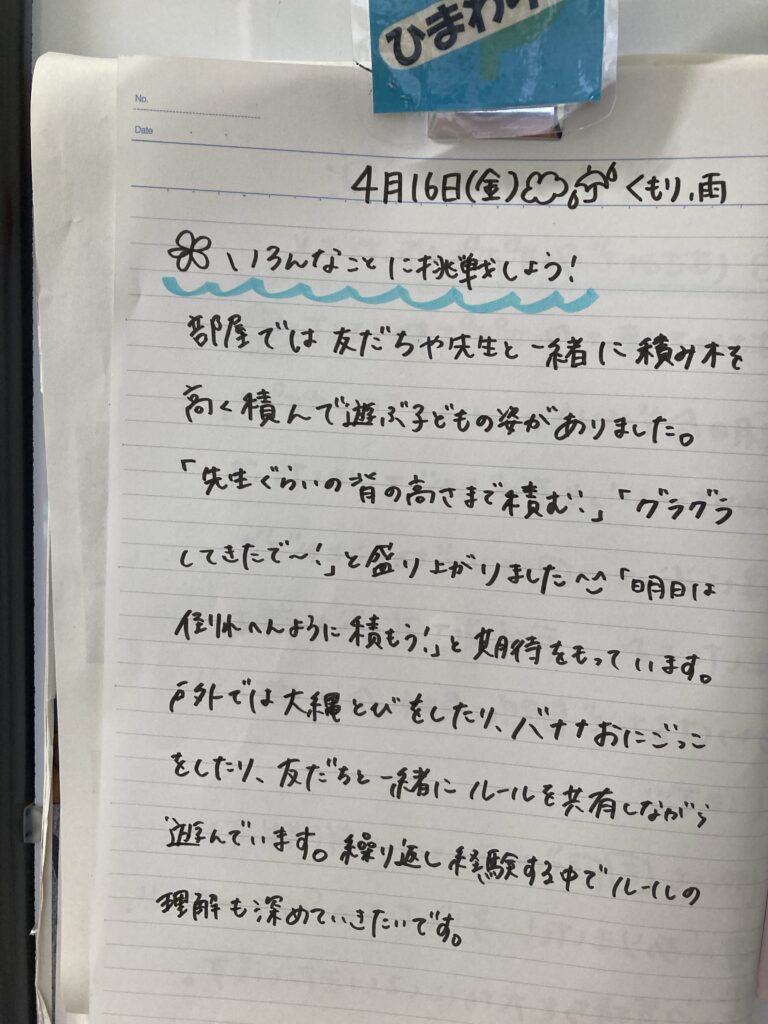 ひまわり
No.
Date
4月16日(金) くもり、雨
いろんなことに挑戦しよう!
部屋では友だちや先生と一緒に積み木を
高く積んで遊ぶ子どもの姿がありました。
「先生ぐらいの背の高さまで積む!」「グラグラ
してきたで〜!」と盛り上がりました^^「明日は
倒れへんように積もう!」と期待をもっています。
戸外では大縄とびをしたり、バナナおにごっこ
をしたり、友だちと一緒にルールを共有しながら
遊んでいます。繰り返し経験する中でルールの
理解も深めていきたいです。